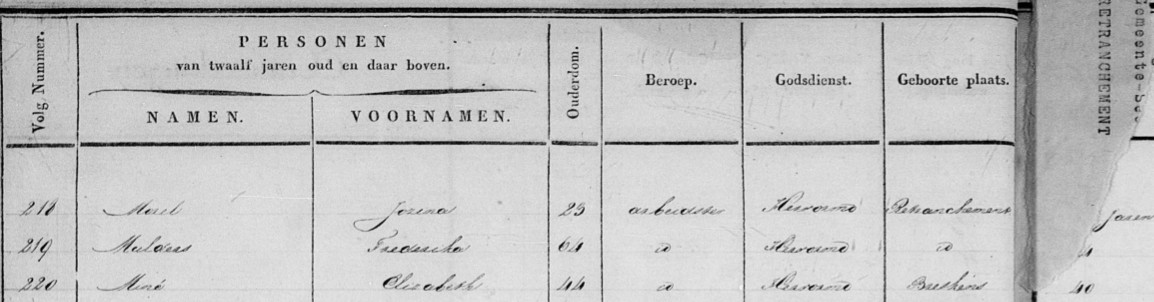 PERSONEN
van twaalf jaren oud en daar boven.
Volg Nummer.
NAMEN.
VOORNAMEN.
Ouderdom.
Beroep.
Godsdienst.
Geboorte plaats.
218 Mosel Jozina 23 arbeidster Hervormd Retranchement
219 Mulders Frederika 64 id Hervormd id
220 Miné Elizabeth 44 id Hervormd Breskens
Gemeente-
RETRANCHEMENT
Jaren
40